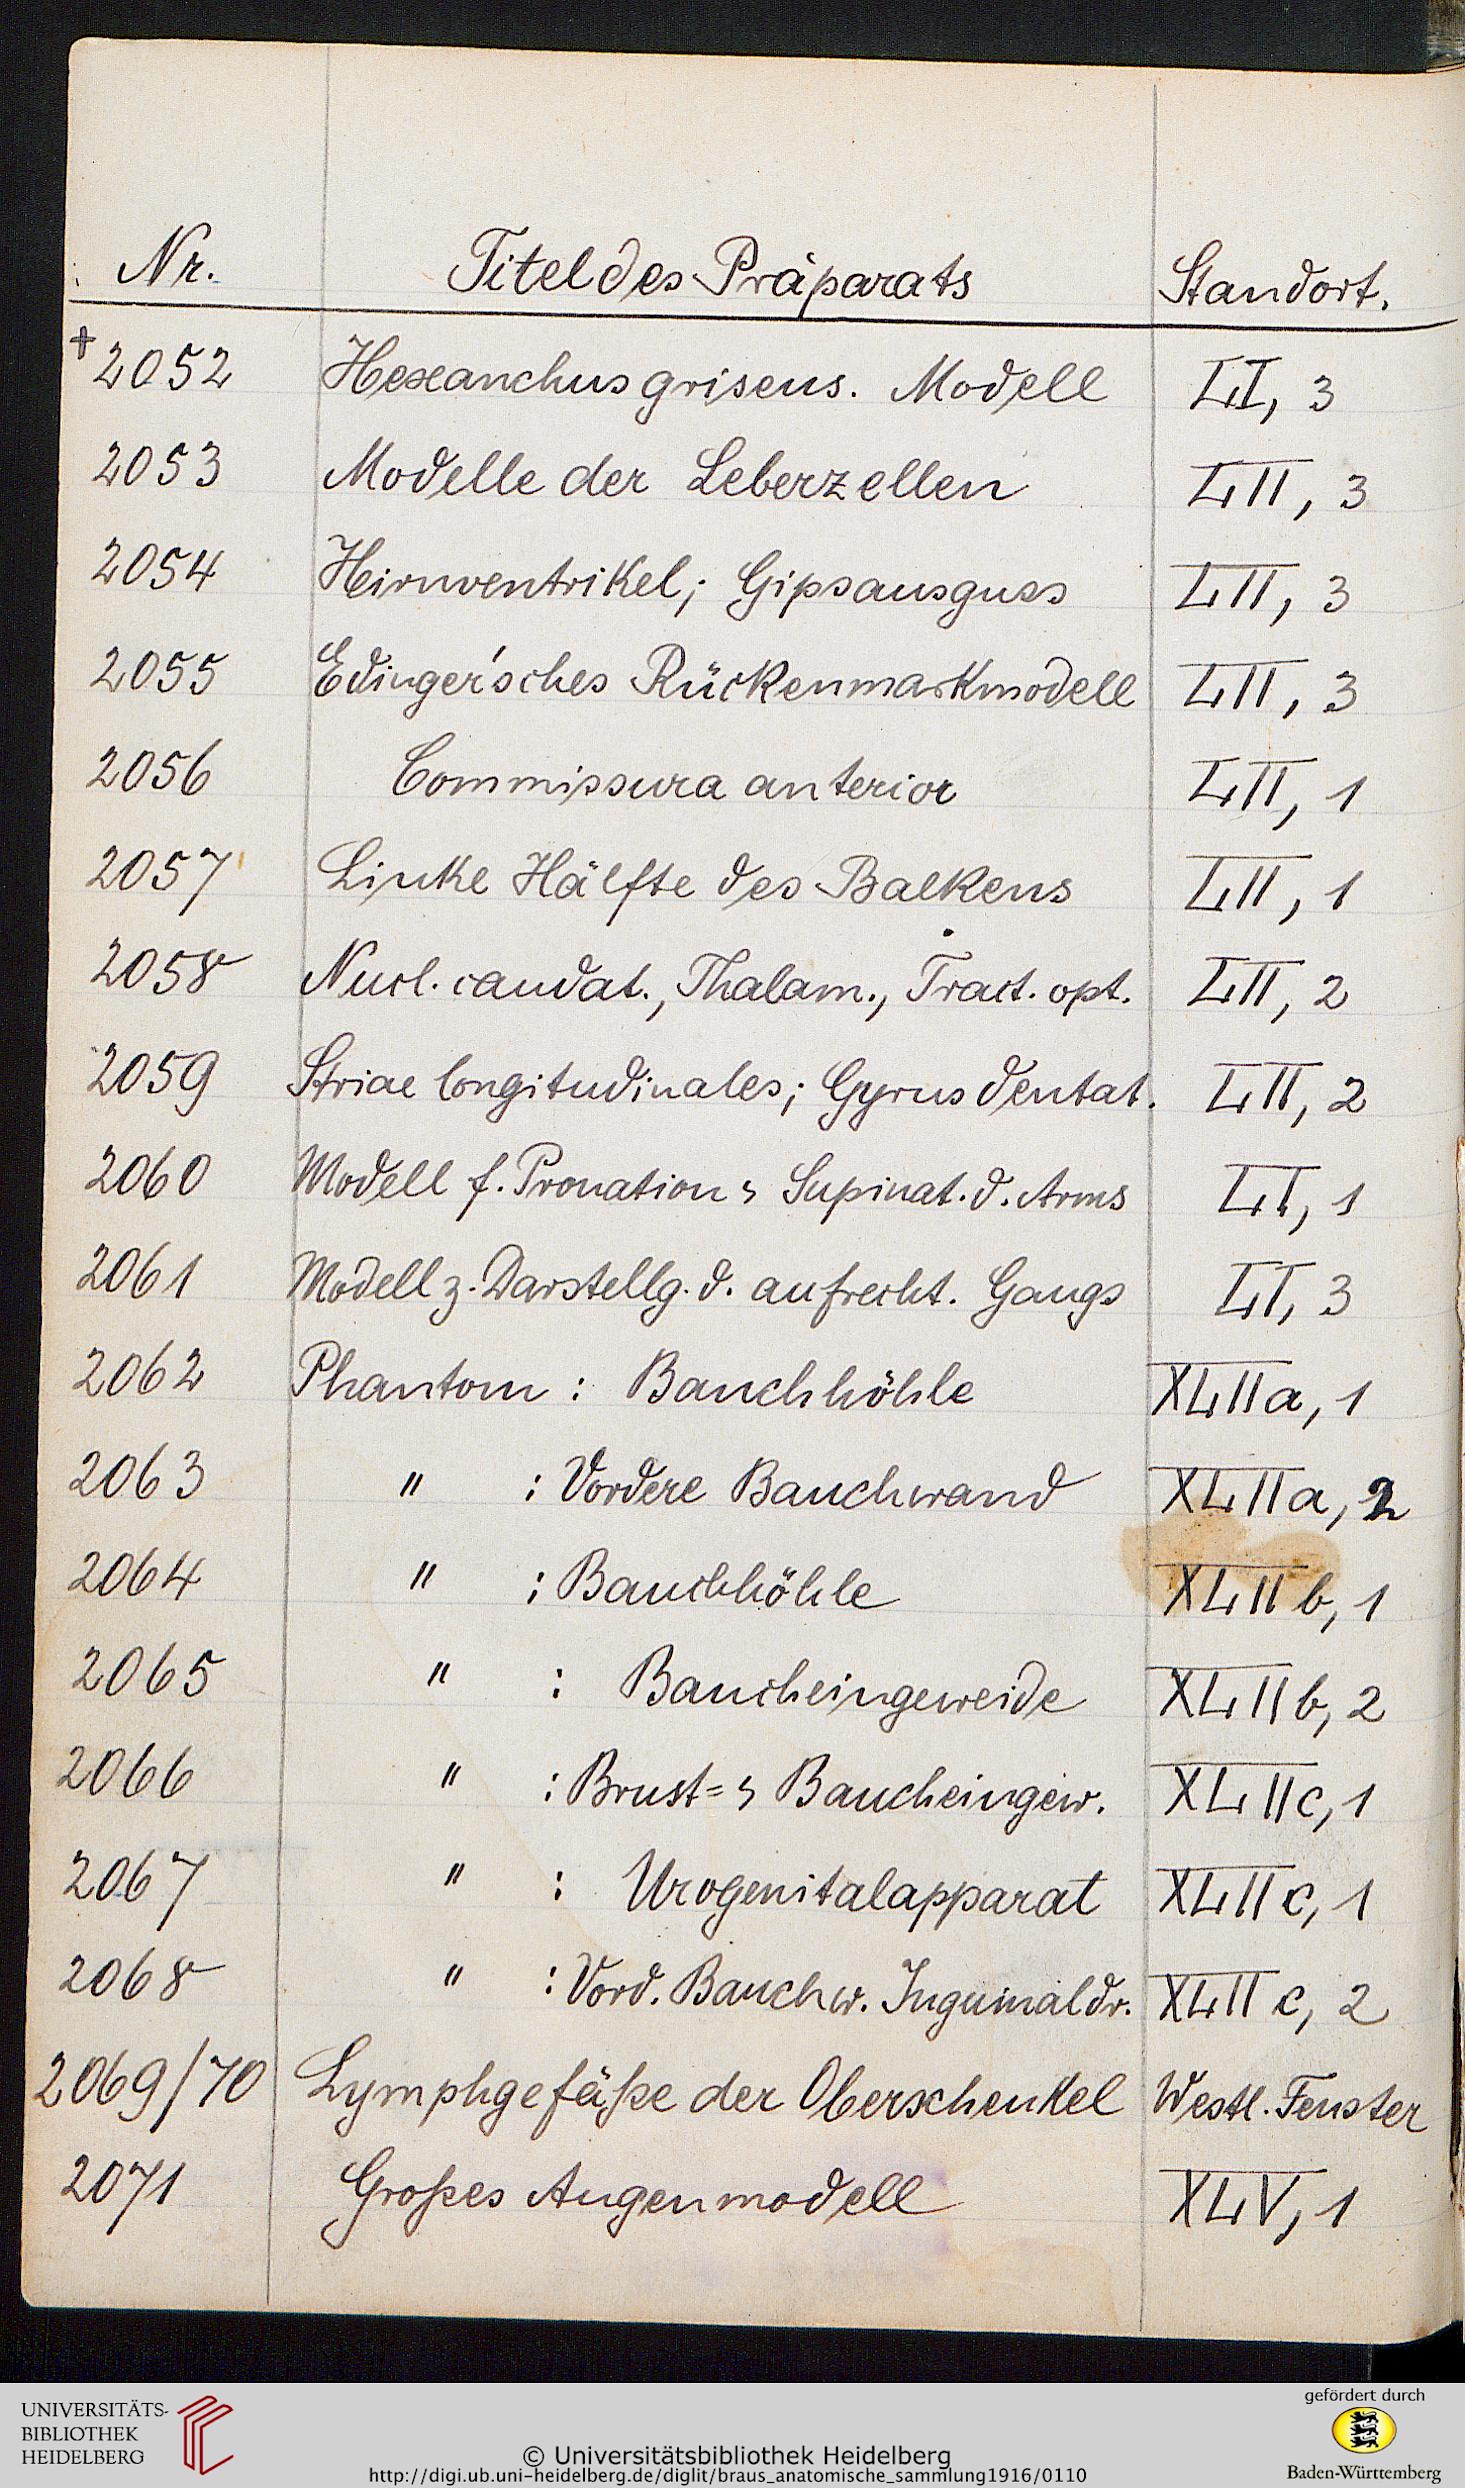 Nr. Titel des Präparats Standort.
+2052 Hexanchus griseus. Modell LI, 3
2053 Modelle der Leberzellen LII, 3
2054 Hirnventrikel; Gipsausguss LII, 3
2055 Edinger'sches Rückenmarkmodell LII, 3
2056 Commissura anterior LII, 1
2057 Linke Hälfte des Balkens LII, 1
2058 Nucl. caudat., Thalam., Tract. opt. LII, 2
2059 Striae longitudinales; Gyrus dentat. LII, 2
2060 Modell f. Pronation u Supinat. d. Arms LI, 1
2061 Modell z. Darstellg. d. aufrecht. Gangs LI, 3
2062 Phantom : Bauchhöhle XLIIa, 1
2063 " : Vordere Bauchwand XLIIa, 2
2064 " : Bauchhöhle XLIIb, 1
2065 " : Baucheingeweide XLIIb, 2
2066 " : Brust= u Baucheingew. XLIIc, 1
2067 " : Urogenitalapparat XLIIc, 1
2068 " : Vord. Bauchw. Inguinaldr. XLIIc, 2
2069/70 Lymphgefäße der Oberschenkel Westl. Fenster
2071 Großes Augenmodell XLV, 1
UNIVERSITÄTS-
BIBLIOTHEK
HEIDELBERG
© Universitätsbibliothek Heidelberg
http://digi.ub.uni-heidelberg.de/diglit/braus_anatomische_sammlung1916/0110
gefördert durch
Baden-Württemberg